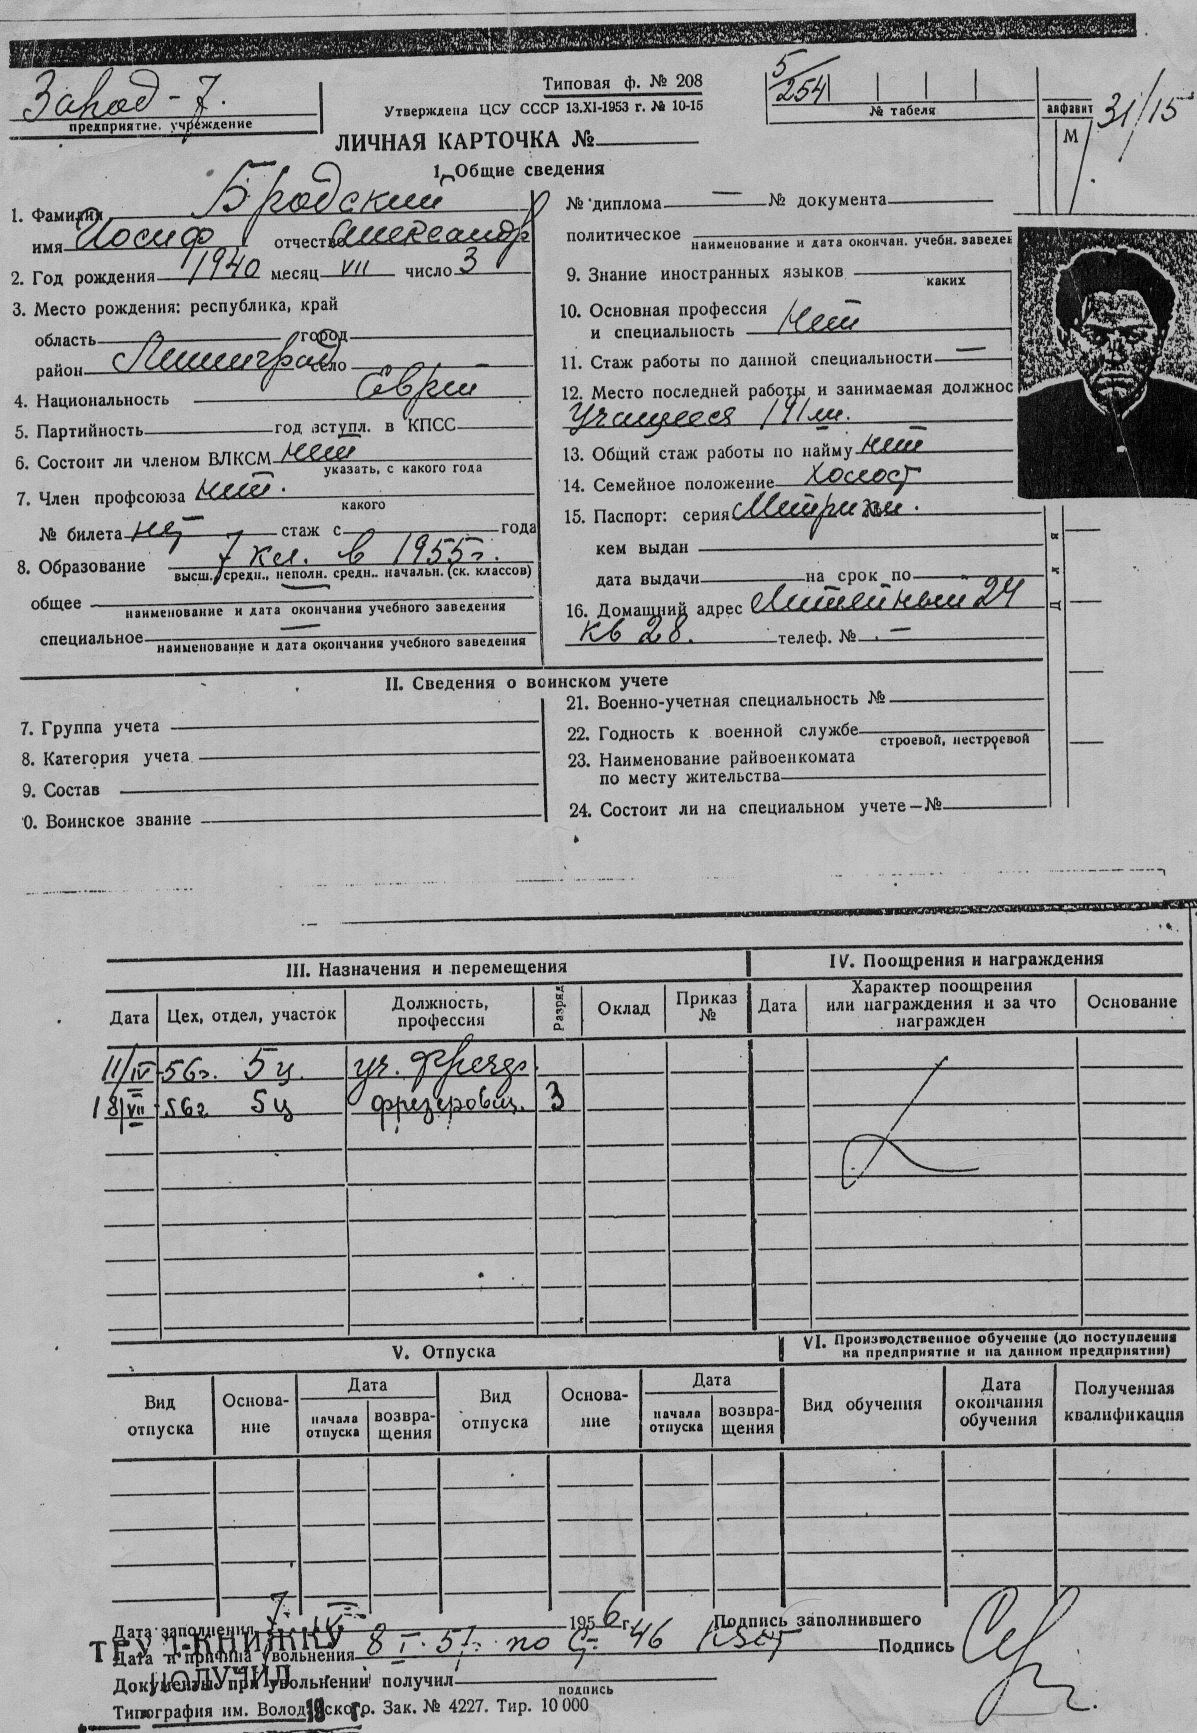 Завод - 7.
предприятие, учреждение
Типовая ф. № 208
Утверждена ЦСУ СССР 13.XI-1953 г. № 10-15
5/254
№ табеля
алфавит
М
31/15
ЛИЧНАЯ КАРТОЧКА №
1. Общие сведения
1. Фамилия Бродский
имя Иосиф отчество Александр
2. Год рождения 1940 месяц VII число 3
3. Место рождения: республика, край
область город
район Ленинград село
4. Национальность Еврей
5. Партийность год вступл. в КПСС
6. Состоит ли членом ВЛКСМ нет
указать, с какого года
7. Член профсоюза нет.
какого
№ билета нет стаж с года
8. Образование 7 кл. в 1955 г.
высш., средн., неполн. средн., начальн. (ск. классов)
общее
наименование и дата окончания учебного заведения
специальное —
наименование и дата окончания учебного заведения
№ диплома — № документа
политическое
наименование и дата окончан. учебн. заведе
9. Знание иностранных языков
каких
10. Основная профессия
и специальность нет
11. Стаж работы по данной специальности —
12. Место последней работы и занимаемая должнос
Учащееся 191 шк.
13. Общий стаж работы по найму нет
14. Семейное положение холост
15. Паспорт: серия Метрики.
кем выдан
дата выдачи на срок по
16. Домашний адрес Литейный 24
кв 28. телеф. № —
Для
II. Сведения о воинском учете
7. Группа учета
8. Категория учета
9. Состав
0. Воинское звание
21. Военно-учетная специальность №
22. Годность к военной службе
строевой, нестроевой
23. Наименование райвоенкомата
по месту жительства
24. Состоит ли на специальном учете — №
III. Назначения и перемещения
IV. Поощрения и награждения
Дата Цех, отдел, участок Должность, профессия Разряд Оклад Приказ № Дата Характер поощрения или награждения и за что награжден Основание
11/IV 56г. 5ц. уч. фрезер.
18/VII 56г 5ц фрезеровщ. 3
V. Отпуска
VI. Производственное обучение (до поступления
на предприятие и на данном предприятии)
Вид отпуска Основание Дата начала отпуска возвращения Вид отпуска Основание Дата начала отпуска возвращения Вид обучения Дата окончания обучения Полученная квалификация
Дата заполнения 7 IV 1956 г. Подпись заполнившего
Дата и причина увольнения 8 I. 57г. по ст 46 КЗОТ Подпись
Документы при увольнении получил
подпись
ТРУД-КНИЖКУ
ПОЛУЧИЛ
19 г.
Типография им. Володарского. Зак. № 4227. Тир. 10 000